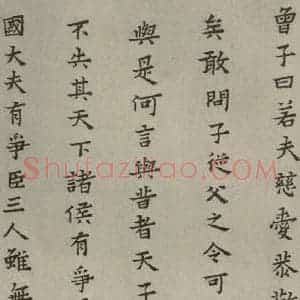 曾子曰若夫慈愛恭敬
矣敢問子從父之令可
與是何言與昔者天子
不失其天下諸侯有爭
國大夫有爭臣三人雖無